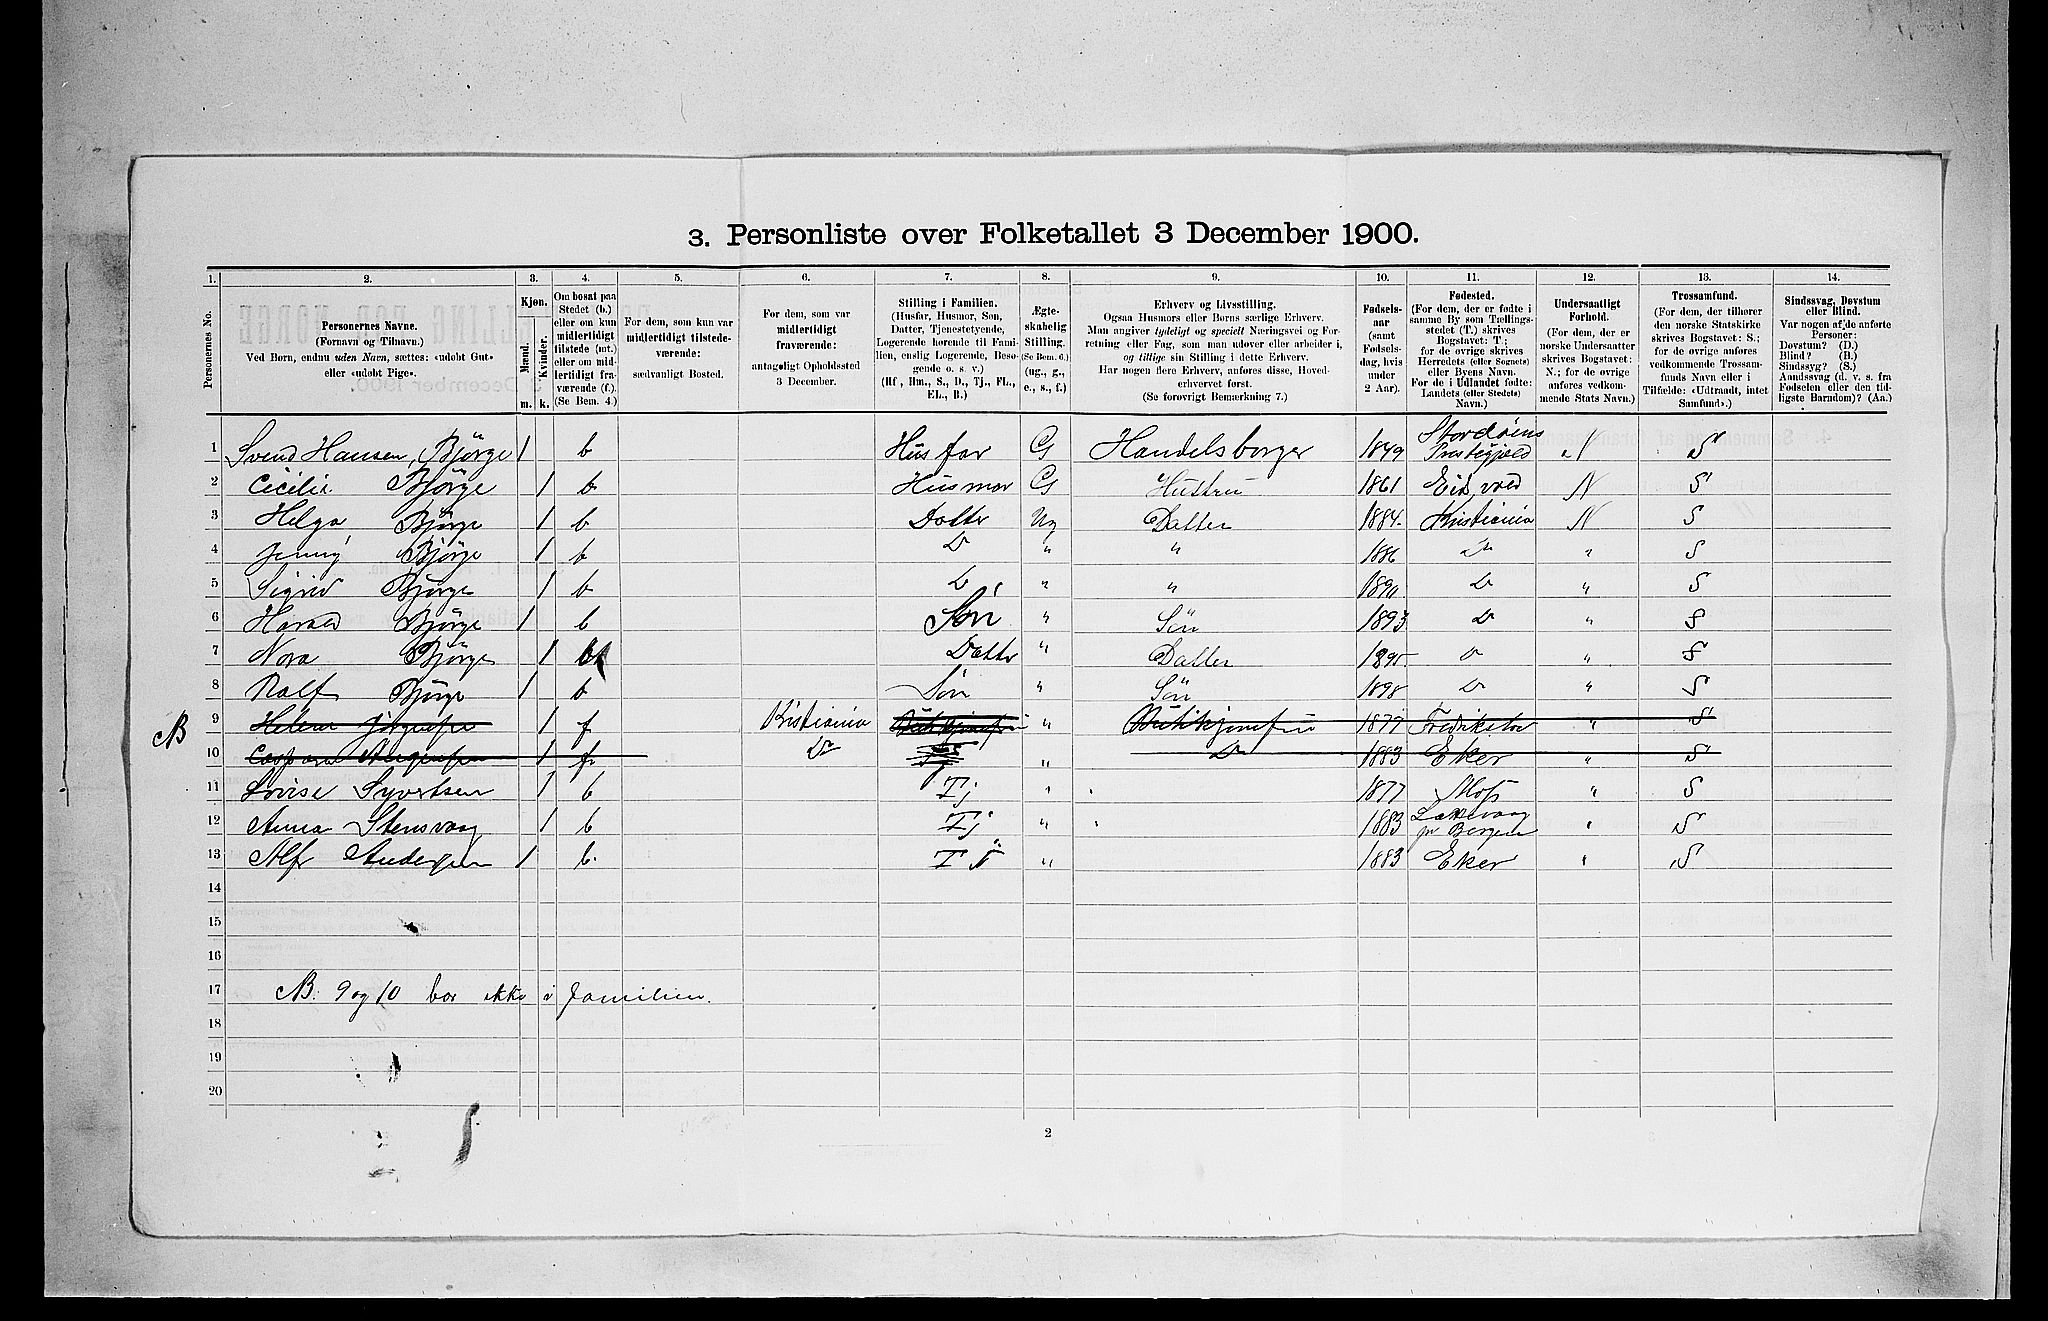 3. Personliste over Folketallet 3 December 1900.
1. 2. 3. 4. 5. 6. 7. 8. 9. 10. 11. 12. 13. 14.
Personernes No.
Personernes Navne.
(Fornavn og Tilnavn.)
Ved Børn, endnu uden Navn, sættes: «udøbt Gut»
eller «udøbt Pige».
Kjøn.
Mænd.
Kvinder.
m. k.
Om bosat paa
Stedet (b.)
eller om kun
midlertidigt
tilstede (mt.)
eller om mid-
lertidigt fra-
værende (f.).
(Se Bem. 4.)
For dem, som kun var
midlertidigt tilstede-
værende:
sædvanligt Bosted.
For dem, som var
midlertidigt
fraværende:
antageligt Opholdssted
3 December.
Stilling i Familien.
(Husfar, Husmor, Søn,
Datter, Tjenestetyende,
Logerende hørende til Fami-
lien, enslig Logerende, Besø-
gende o. s. v.)
(Hf., Hm., S., D., Tj., FL.,
EL., B.)
Ægte-
skabelig
Stilling.
(Se Bem. 6.)
(ug., g.,
e., s., f.)
Erhverv og Livsstilling.
Ogsaa Husmors eller Børns særlige Erhverv.
Man angiver tydeligt og specielt Næringsvei og For-
retning eller Fag, som man udøver eller arbeider i,
og tillige sin Stilling i dette Erhverv.
Har nogen flere Erhverv, anføres disse, Hoved-
erhvervet først.
(Se forøvrigt Bemærkning 7.)
Fødsels-
aar
(samt
Fødsels-
dag, hvis
under
2 Aar).
Fødested.
(For dem, der er fødte i
samme By som Tællings-
stedet (T.) skrives
Bogstavet: T.;
for de øvrige skrives
Herredets (eller Sognets)
eller Byens Navn.
For de i Udlandet fødte:
Landets (eller Stedets)
Navn.)
Undersaatligt
Forhold.
(For dem, der er
norske Undersaatter
skrives Bogstavet:
N.; for de øvrige
anføres vedkom-
mende Stats Navn.)
Trossamfund.
(For dem, der tilhører
den norske Statskirke
skrives Bogstavet: S.;
for de øvrige anføres
vedkommende Trossam-
funds Navn eller i
Tilfælde: «Udtraadt, intet
Samfund».)
Sindssvag, Døvstum
eller Blind.
Var nogen af de anførte
Personer:
Døvstum? (D.)
Blind? (B.)
Sindssyg? (S.)
Aandssvag (d. v. s. fra
Fødselen eller den tid-
ligste Barndom)? (Aa.)
1 Svend Hansen, Björge 1 b Husfar G Handelsborger 1849 Stordøens Prestegjeld N S
2 Cecilie Björge 1 b Husmor G Hustru 1861 Eidsvold N S
3 Helga Björge 1 b Datter Ug Datter 1884. Kristiania N S
4 Jenny Björge 1 b Do " " 1886 Do " S
5 Sigrid Björge 1 b Do " " 1890 Do " S
6 Harald Björge 1 b Søn " Sön 1893 Do " S
7 Nora Björge 1 b Datter " Datter 1895 Do " S
8 Ralf Björge 1 b Søn " Sön 1898 Do " S
NB 9 Helene Jörgensen 1 f Kristiania " 1877 Fredrikstad " S
10 1 f Do " Do 1883 Eker " S
11 Lovise Syvertsen 1 b Tj " " 1877 Moss " S
12 Anna Stensvaag 1 b Tj " " 1883 Laksevaag pr Bergen " S
13 Alf Andersen 1 b. Tj " 1883 Eker " S
14
15
16
17 NB. 9 og 10 bor ikke i familien.
18
19
20
2